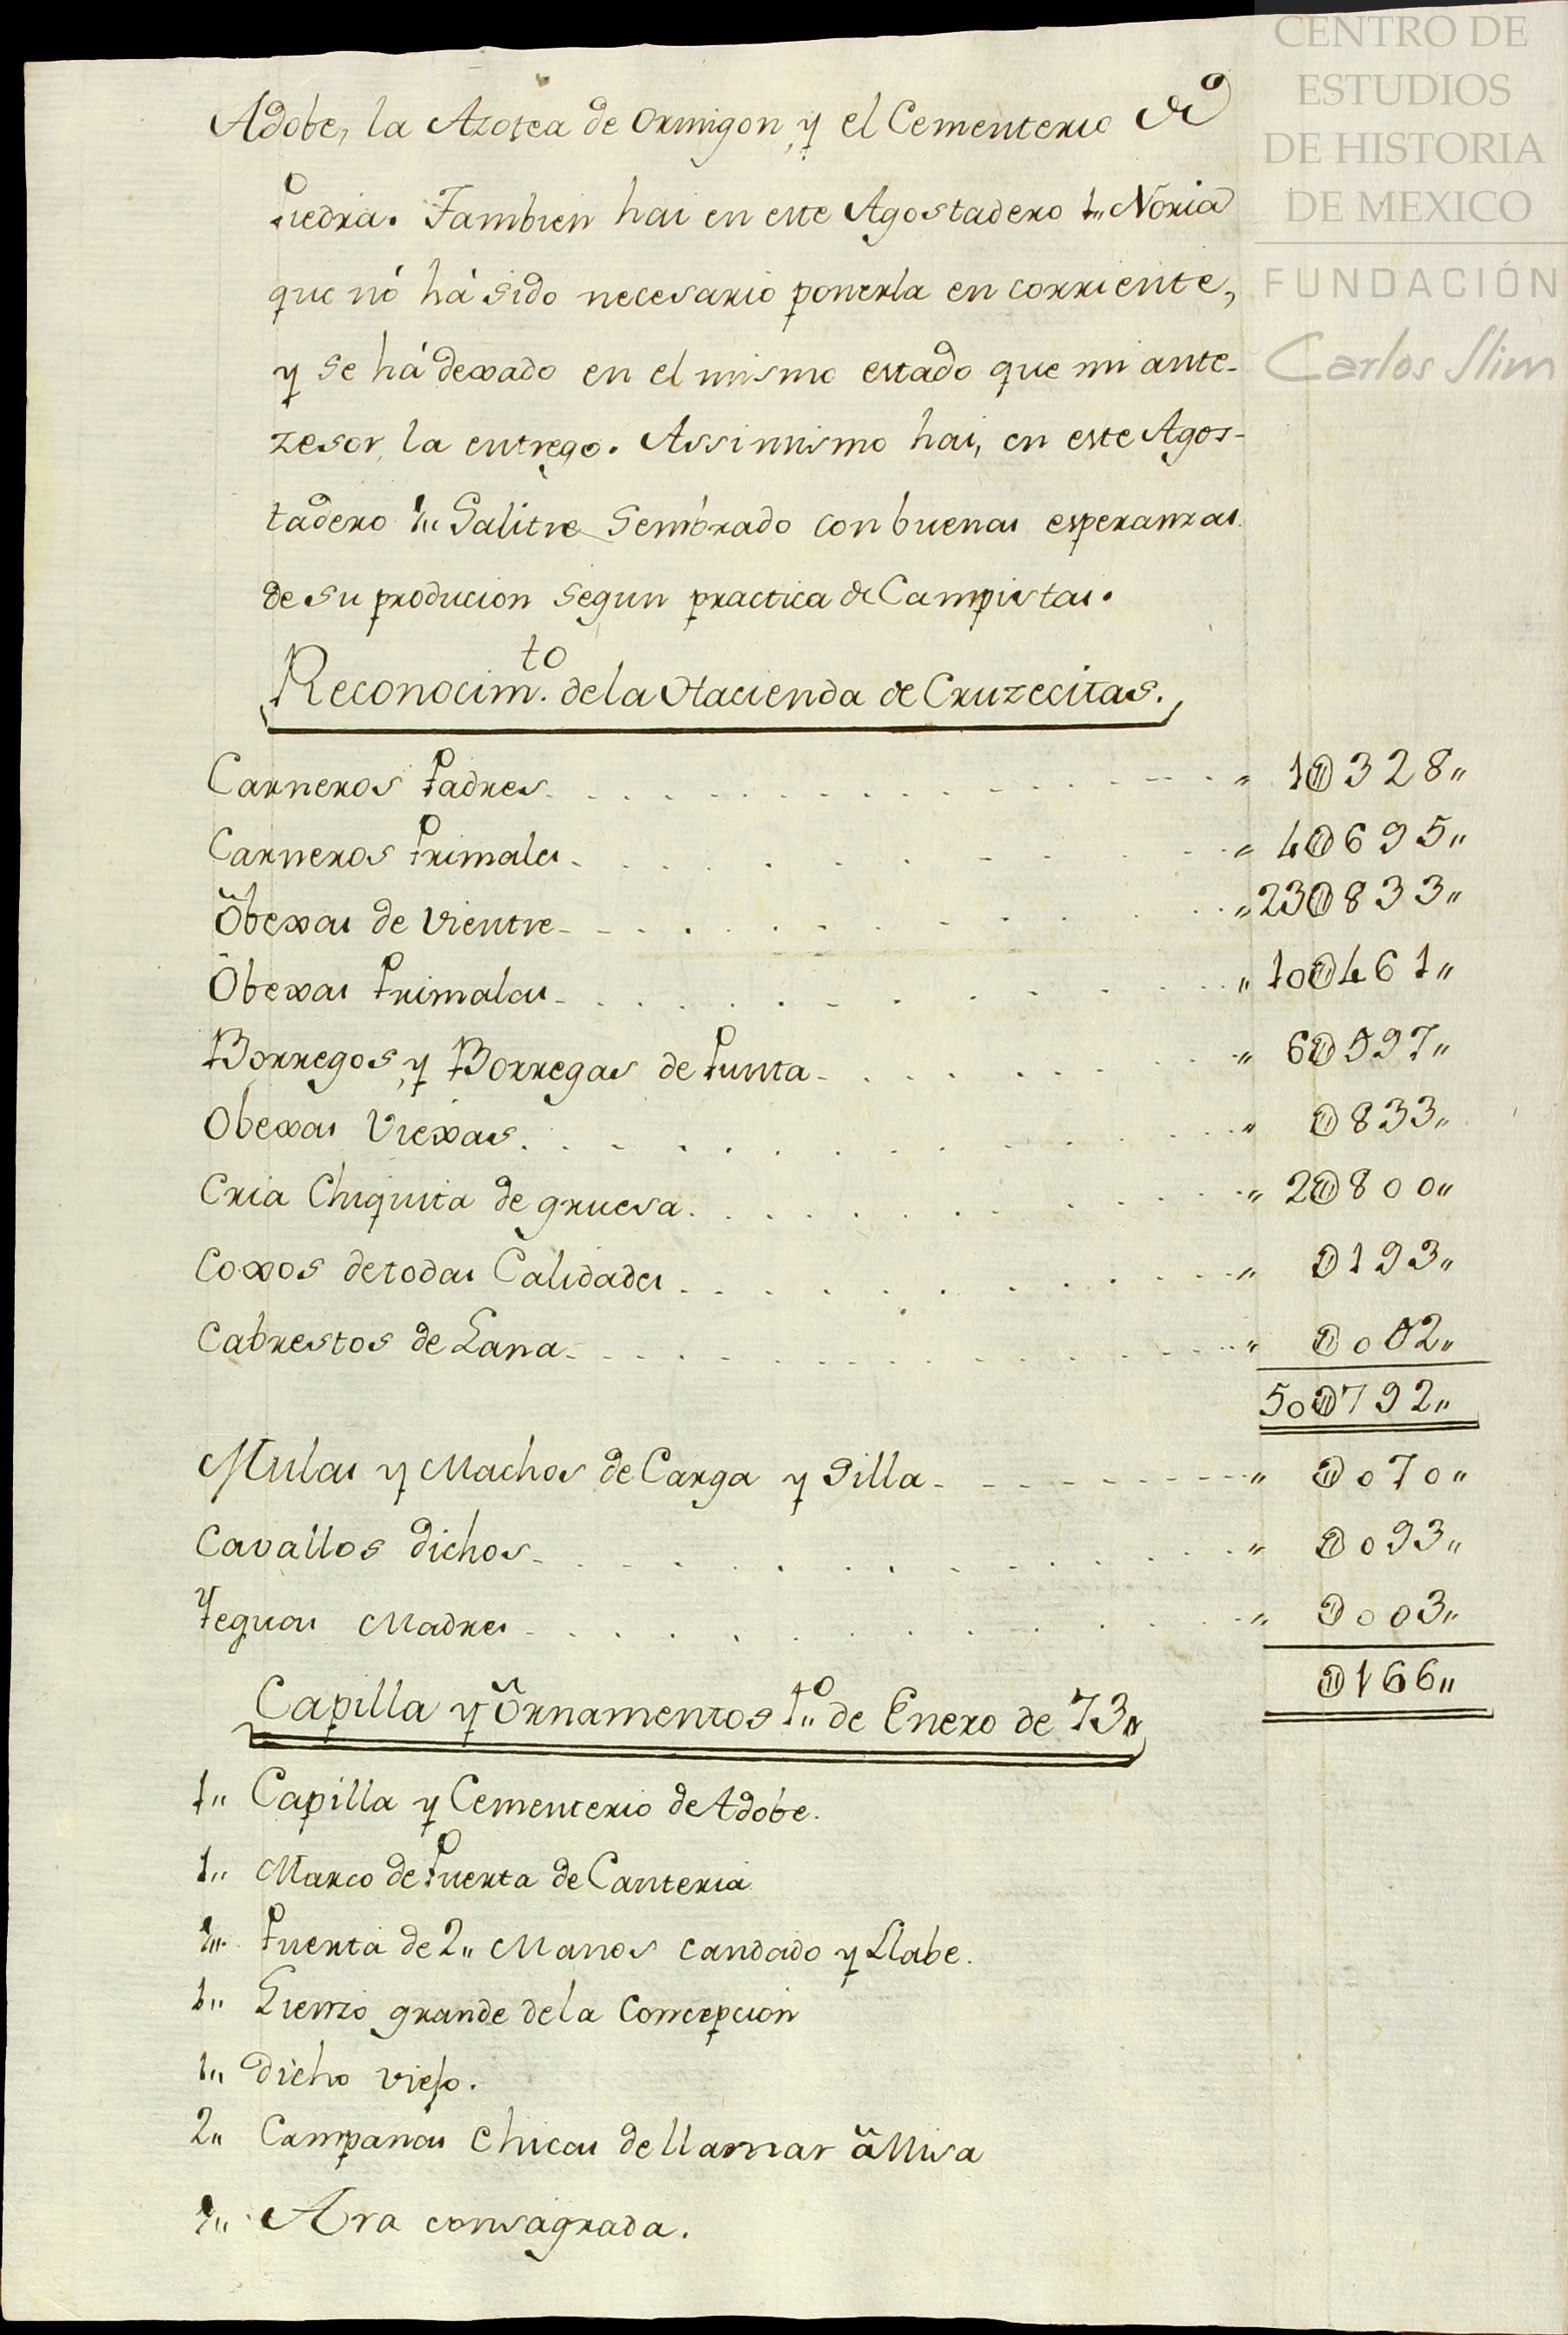 Adobe, la Azotea de Ormigon, y el Cementerio de
Piedra. Tambien hai en este Agostadero 1" Noria
que nó há sido necesario ponerla en corriente,
y se há dexado en el mismo estado que mi ante-
zesor la entrego. Assi mismo hai, en este Agos-
tadero 1" Salitre Sembrado con buenas esperanzas
de su producion segun practica de Campistas.
Reconocim.to de la Hacienda de Cruzecitas.
Carneros Padres " 1@328"
Carneros Primales " 4@695"
Obexas de Vientre " 23@833"
Obexas Primalas " 10@461"
Borregos, y Borregas de Punta " 6@597"
Obexas Viexas " @833"
Cria Chiquita de gruesa " 2@800"
Coxos de todas Calidades " @193"
Cabrestos de Lana " @002"
50@792"
Mulas y Machos de Carga y Silla " @070"
Cavallos dichos " @093"
Yeguas Madres " @003"
@166"
Capilla y Ornamentos 1"o de Enero de 73"
1" Capilla y Cementerio de Adobe.
1" Marco de Puerta de Canteria
1" Puerta de 2" Manos candado y Llabe.
1" Lienzo grande de la Concepcion
1" dicho viejo.
2" Campanas Chicas de llamar â Misa
1" Ara consagrada.
CENTRO DE
ESTUDIOS
DE HISTORIA
DE MEXICO
FUNDACIÓN
Carlos Slim